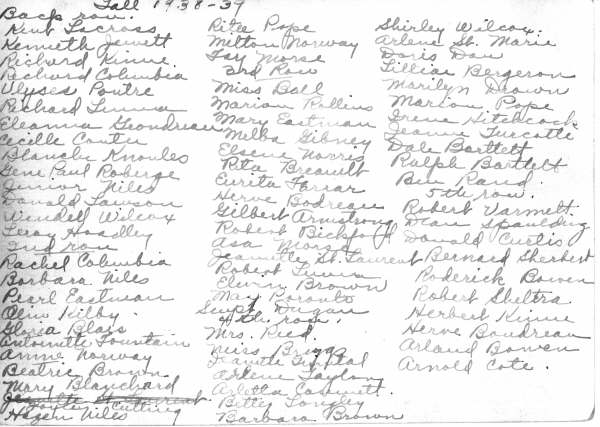 Fall 1938-39
Back row.
Kent Lacross
Kenneth Jewett
Richard Kinne.
Richard Columbia
Ulyses Poutre
Richard
Eleanna Grondreau
Cecille Coutu
Blanche Knowles
Gene Paul Roberge
Junior Niles
Donald Lawson
Wendell Wilcox
Leroy Hoadley
2nd row
Rachel Columbia
Barbara Niles
Pearl Eastman
Olin Kilby.
Gloria Blais
Antoinette Fountain
Anne Norway
Beatrice Brown
Mary Blanchard
Jeanette St. Laurent
Cutting
Hazen Niles
Rita Pope
Melton Norway
Fay Morse
3rd Row
Miss Ball
Marion Rollins
Mary Eastman
Melba Gibney
Elsene Norris
Rita Breault
Eurita Farrar
Herve Bodreau
Gilbert Armstrong
Robert Bickford
Asa Morse
Jeanette St. Laurent
Robert
Elwin Brown
May Poronto
Supt Dugan
4th row.
Mrs. Ried.
Miss Briggs
Jeanette
Arlene Taylor
Arletta
Betty Longley
Barbara Brown
Shirley Wilcox.
Arlene St. Marie
Doris Dow
Lillian Bergeron
Marilyn Drown
Marion Pope
Irene Hitchcock
Jeanne Turcotte
Dale Bartlett
Ralph Bartlett
Ben Rand.
5th row.
Robert Varmett.
Dean Spaulding
Donald Curtis
Bernard Sherbert
Roderick Bowen
Robert Sheltra
Herbert Kinne
Herve Boudreau
Arland Bowen
Arnold Cote.